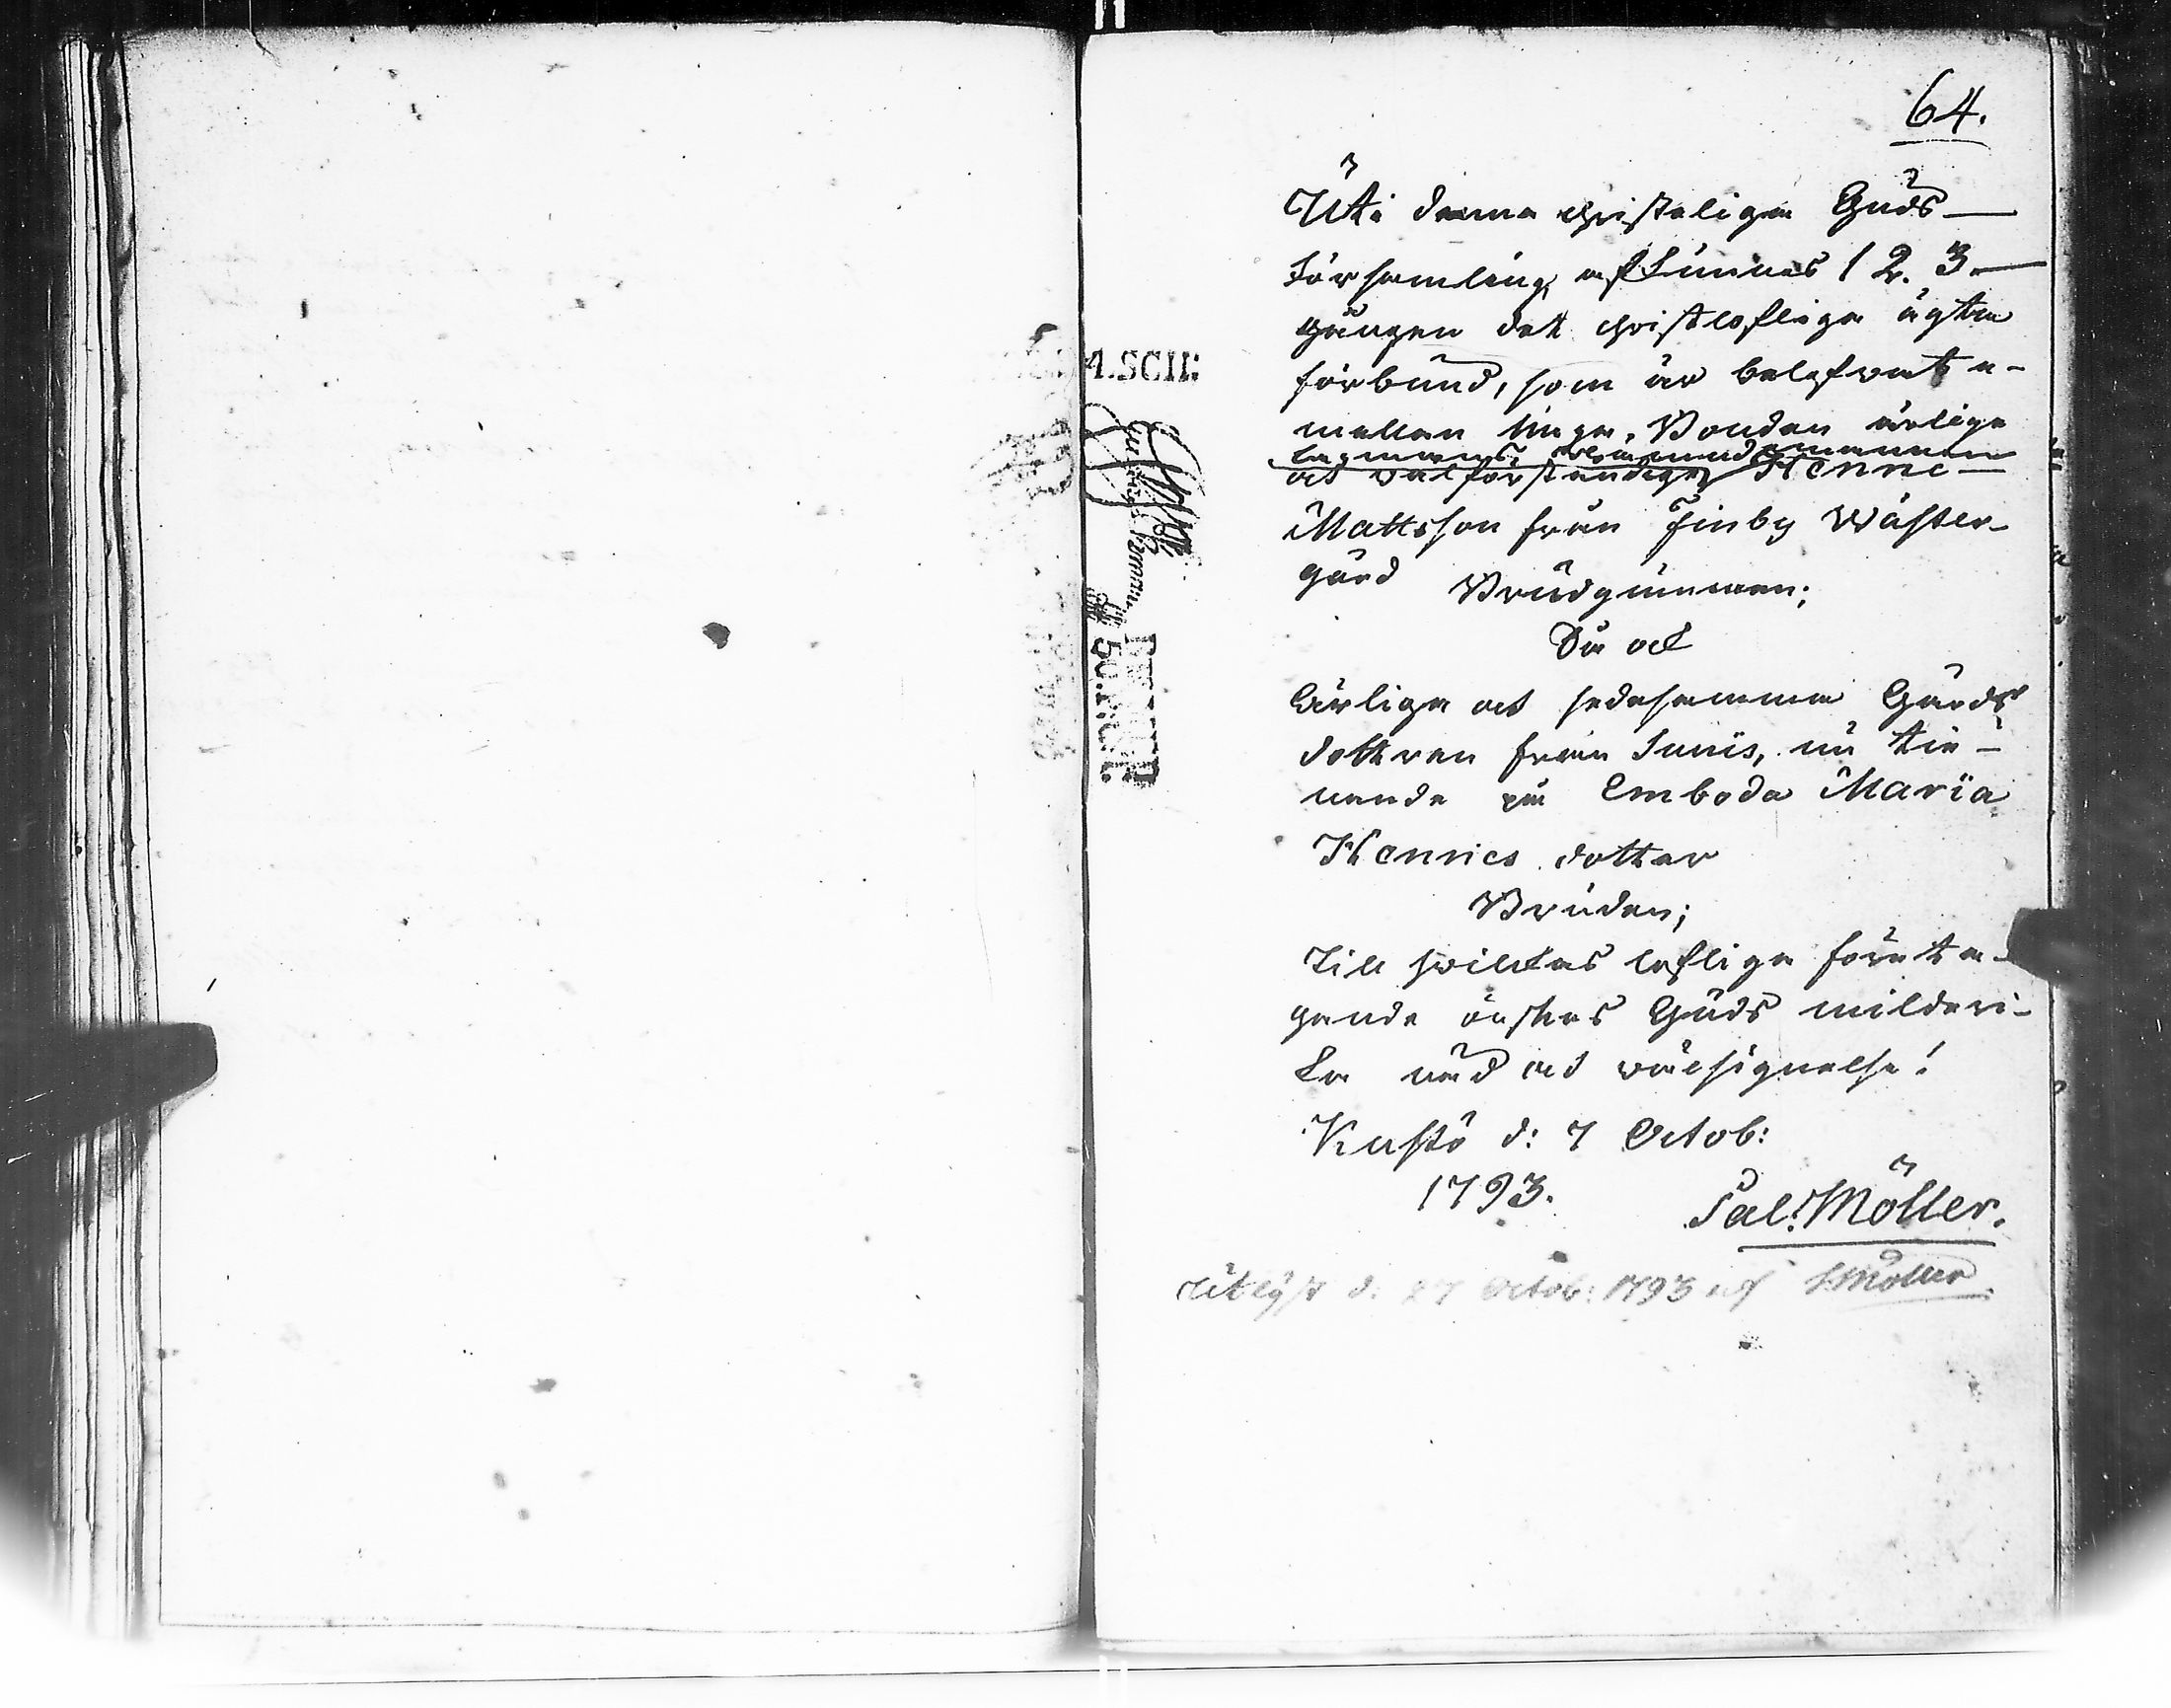 64.
Uti denna christeliga Guds
församling afkunnas 1 2. 3.
gången det christlofliga ägta
förbund, som är belefvat e-
mellan unga Bonden ärlige
och välförståndige Henric
Mattsson från Finby Wäster-
gård Brudgummen;
Så ock
Ärliga och sedesamma Gårds
dottren från Sunis, nu tie-
nande på Emboda Maria
Henrics dotter
Bruden;
Till hvilkas lofliga företa-
gande önskas Guds milderi-
ka nåd och välsignelse!
Kustö d: 7 Octob:
1793.
Sal: Möller.
Utlyst d. 27 Octob: 1793 af S. Möller
4.SCH: